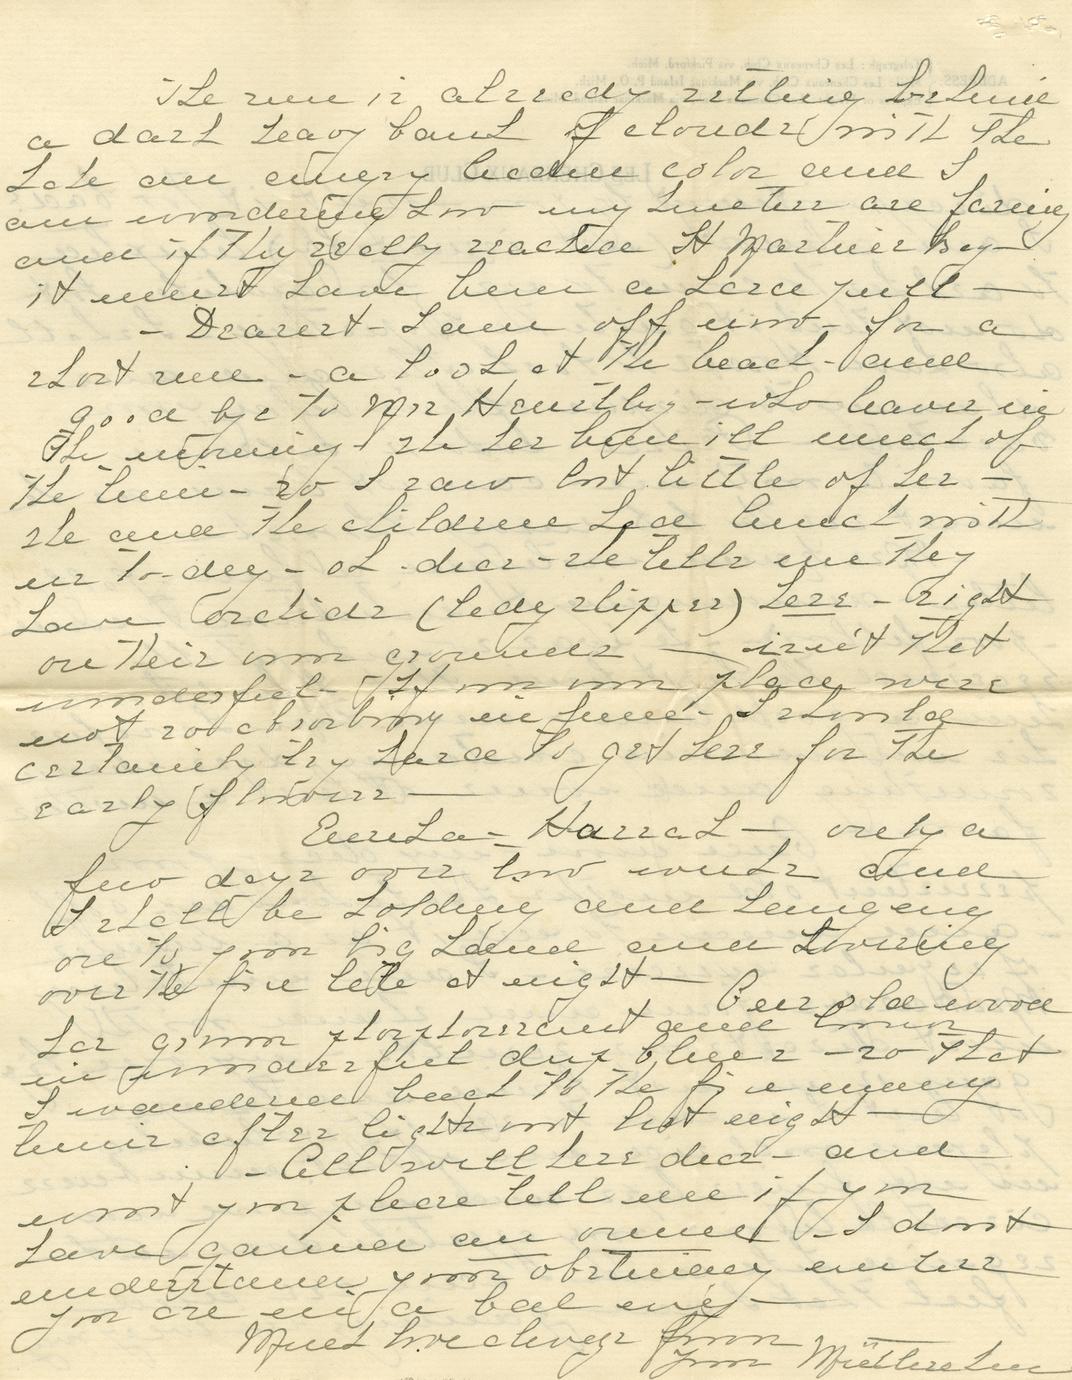 The sun is already setting behind
a dark heavy bank of clouds with the
lake an angry leaden color and I
am wondering how my hunters are faring
and if they really reached St Martin's bay—
it must have been a hard pull—
- Dearest - I am off now - for a
short run - a look at the beach - and
good bye to Mrs - who leaves in
the morning - she has been ill much of
the time - so I saw but little of her -
she and the children had lunch with
us to-day - oh - dear - she tells me they
have orchids (lady slipper) here - right
on their own grounds — isn't that
wonderful - If our own place were
not so absorbing in June - I should
certainly try hard to get here for the
early flowers—
Eureka - Hurrah — only a
few days over two weeks and
I shall be holding and hanging
on to your big hand and
over the fire late at night—
Our old wood
has grown phosphorescent and burns
in wonderful deep blues - so that
I wandered back to the fire many
times after lights out last night—
- All well here dear - and
wont you please tell me if you
have gained an ounce - I dont
understand your obstinacy unless
you are in a bad way—
Much love always from
your Mütterchen